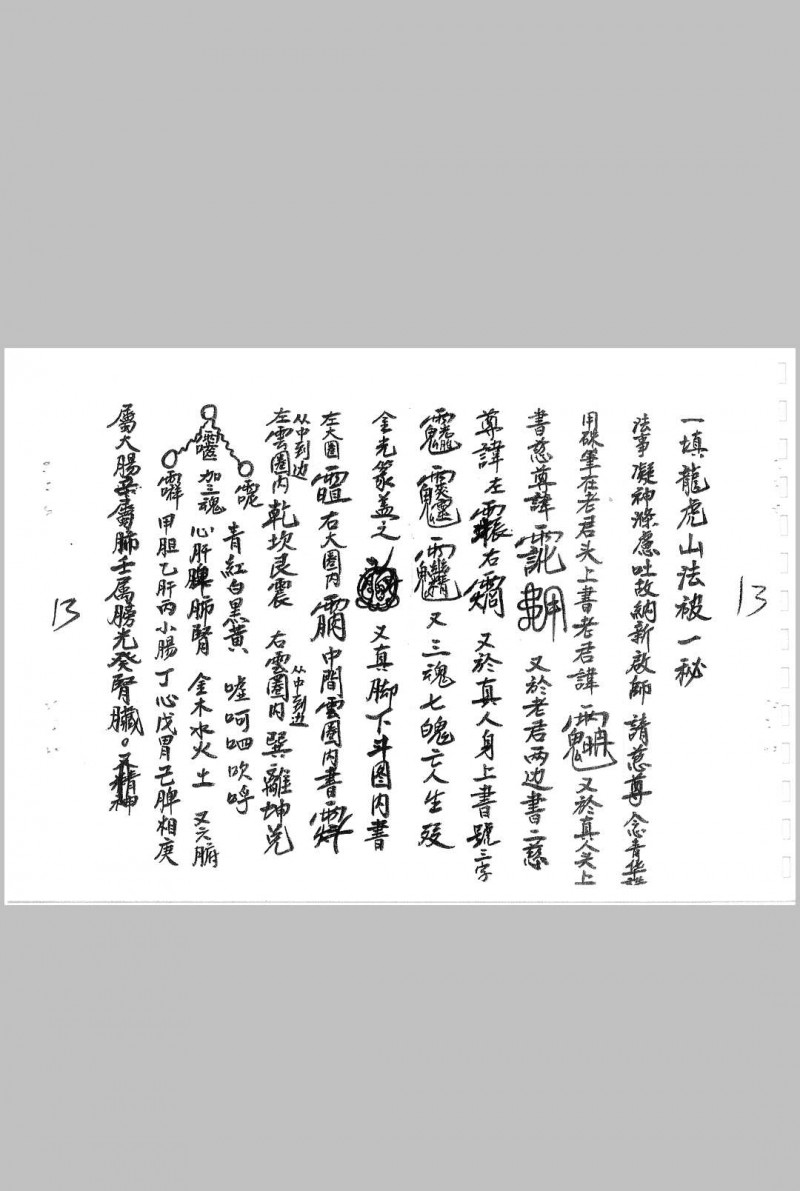 13
一填龍虎山法被一秘
法事凝神滌慮吐故納新啟師 請慈尊 念青华
用硃筆在老君头上書老君諱 又於真人头上
書慈尊諱 又於老君两边書二慈
尊諱左 右 又於真人身上書號三字
又三魂七魄亡人生歿
金光篆盖之 又真脚下斗图内書
左大圈 右大圈内 中間雲圈内書
左雲圈内 从中到边 乾坎艮震 右雲圈内 从中到边 巽離坤兑
青紅白黑黄 嘘呵呬吹呼
加三魂 心肝脾肺腎 金木水火土 又六腑
甲胆乙肝丙小腸丁心戊胃己脾相庚
屬大腸辛屬肺壬属膀光癸腎臟。精神
13